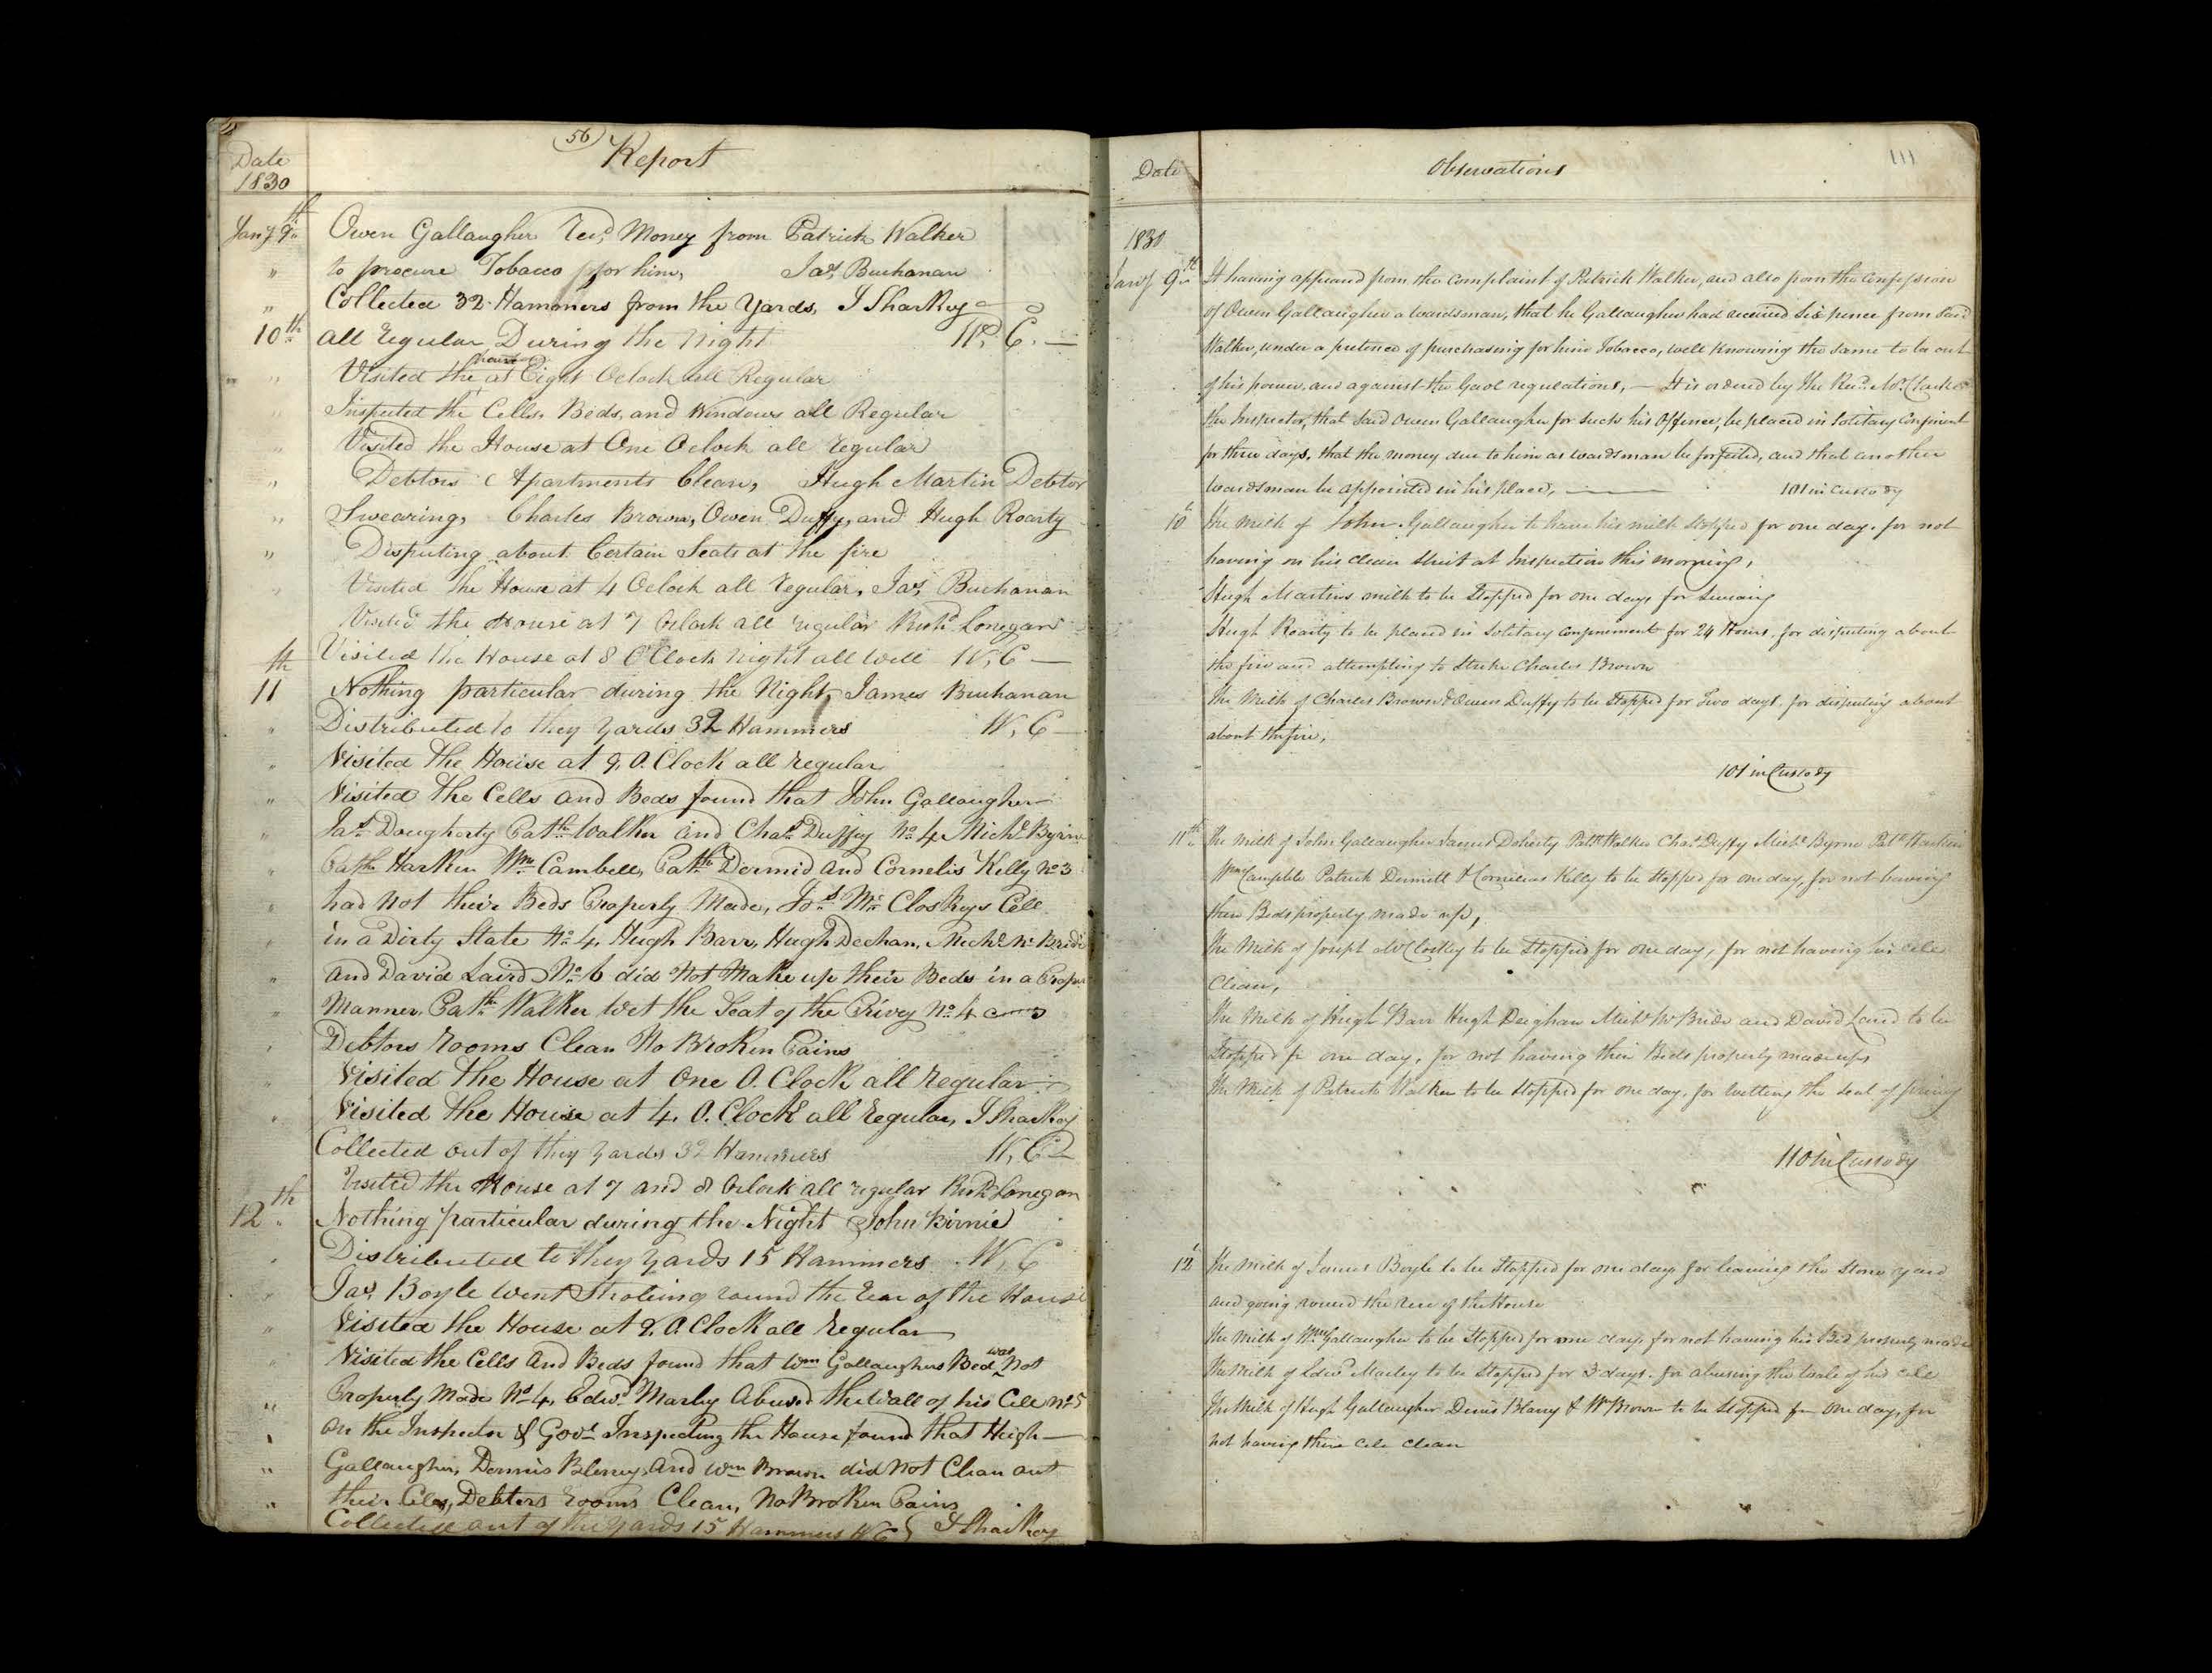 56
Date
1830
Report
Jany 9th Owen Gallaugher Recd Money from Patrick Walker
" to procure Tobacco for him, Jas Buchanan
" Collected 32 Hammers from the Yards, J Sharkey
10th all regular During the Night W. C.
" Visited the house at Eight Oclock all Regular
" Inspected the Cells, Beds, and Windows all Regular
" Visited the House at One Oclock all regular
" Debtors Apartments Clean, Hugh Martin Debtor
" Swearing, Charles Brown, Owen Duffy, and Hugh Roarty
" Disputing about Certain Seats at the fire
" Visited the House at 4 Oclock all regular, Jas Buchanan
Visited the House at 7 Oclock all regular Richd Lonegan
Visited the House at 8 O'Clock Night all well W, C
11th Nothing particular during the Night, James Buchanan
" Distributed to they Yards 32 Hammers W, C
" Visited the House at 9, O. Clock all regular
" Visited the Cells and Beds found that John Gallaugher
" Jas Dougherty Patk Walker and Chas Duffey No 4 Michl Byrne
" Patk Harken Wm Cambell, Patk Dermid and Cornelis Kelly No 3
" had not their Beds Properly Made, Jos Mc Closkeys Cell
" in a Dirty State No 4, Hugh Barr, Hugh Deehan, Michl Mc Bride
" and David Laird No 6 did Not Make up their Beds in a Proper
" Manner, Patk Walker Wet the Seat of the Privy No 4
" Debtors Rooms Clean No Broken Pains
" Visited the House at One O. Clock all regular
" Visited the House at 4. O. Clock all regular, J Sharkey
Collected out of they Yards 32 Hammers W, C
Visited the House at 7 and 8 Oclock all regular Richd Lonegan
12th Nothing particular during the Night John Birnie
" Distributed to they Yards 15 Hammers W, C
" Jas, Boyle Went Stroleing round the Rear of the House
" Visited the House at 9. O. Clock all Regular
" Visited the Cells and Beds found that Wm Gallaughers Bed was Not
" Properly Made No 4, Edwd Marley Abused the Wall of his Cell No 5
" on the Inspector & Govr Inspecting the House found that Hugh
" Gallaugher, Dennis Bleney, and Wm Brown did Not Clean out
" their Cells, Debters rooms Clean, No Broken Pains
Collected out of they Yards 15 Hammers W C J Sharkey
111
Date
Observations
1830
Jany 9th It having appeard from the Complaint of Patrick Walker, and also from the Confession
of Owen Gallaugher a wardsman, that he Gallaugher had received Six pence from Said
Walker, under a pretence of purchasing for him Tobacco, well Knowing the same to be out
of his power, and against the Gaol regulations, — It is ordered by the Revd Mr. Clarke &
the Inspector, that Said Owen Gallaugher for such his Offence, be placed in Solitary Confinment
for three days, that the money due to him as wardsman be forfeited, and that another
wardsman be appointed in his place, 101 in Custody
10th The milk of John Gallaugher to have his milk Stopped for one day. for not
having on his clean Shirt at Inspection this morning,
Hugh Martins milk to be Stopped for one day for Swearing
Hugh Roarty to be placed in Solitary Confinement for 24 Hours, for disputing about
the fire and attempting to Strike Charles Brown
The Milk of Charles Brown & Owen Duffy to be Stopped for Two days, for disputing about
about the fire,
101 in Custody
11th The milk of John Gallaugher James Doherty Patk Walker Chas Duffy Michl Byrne Patk Harkin
Wm Campble Patrick Dermitt & Cornelius Kelly to be Stopped for one day, for not having
their Beds properly made up,
The Milk of Joseph McCloskey to be Stopped for one day, for not having his cell
Clean,
The Milk of Hugh Barr Hugh Deighan Michl McBride and David Laird to be
Stopped for one day, for not having their Beds properly made up
The Milk of Patrick Walker to be Stopped for one day, for wetting the Seat of privy
110 in Custody
12th The Milk of James Boyle to be Stopped for one day, for leaving the Stone yard
and going round the rere of the House
The Milk of Wm Gallaugher to be Stopped for one day, for not having his Bed properly made
The Milk of Edwd Marley to be Stopped for 3 days. for abusing the walls of his cell
The Milk of Hugh Gallaugher Denis Blany & Wm Brown to be Stopped for one day, for
not having their cells clean